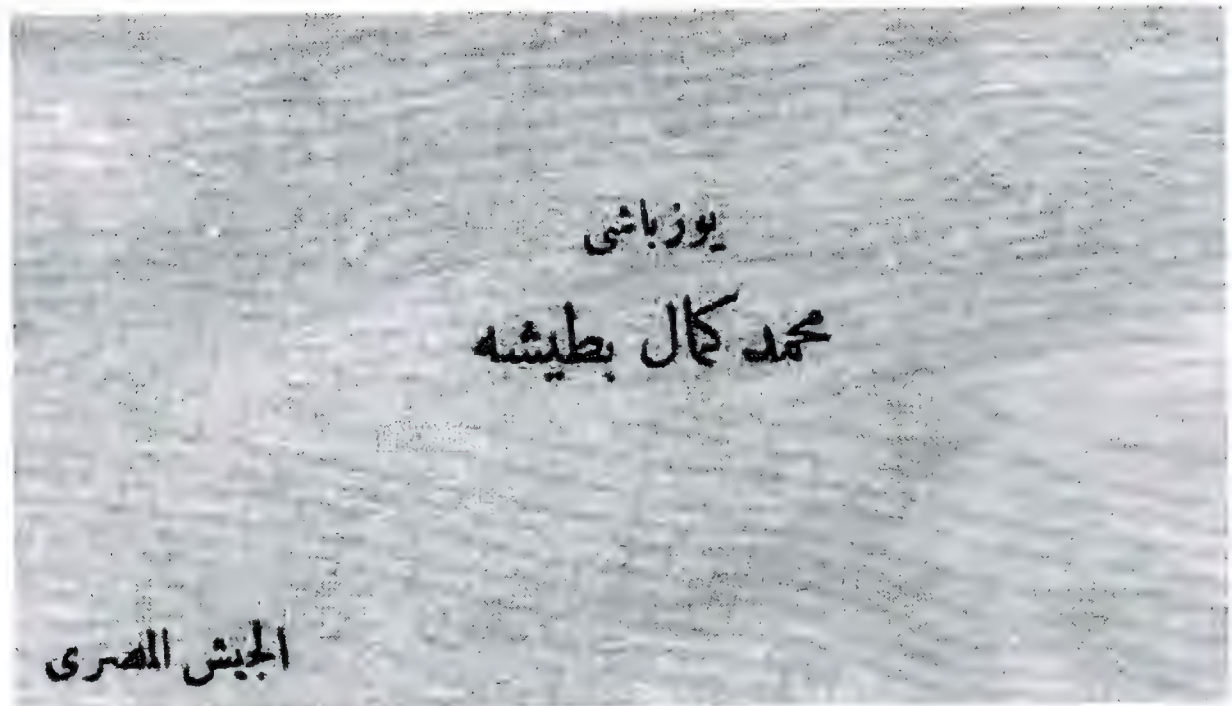 يوزباشى
محمد كمال بطيشه
الجيش المصرى